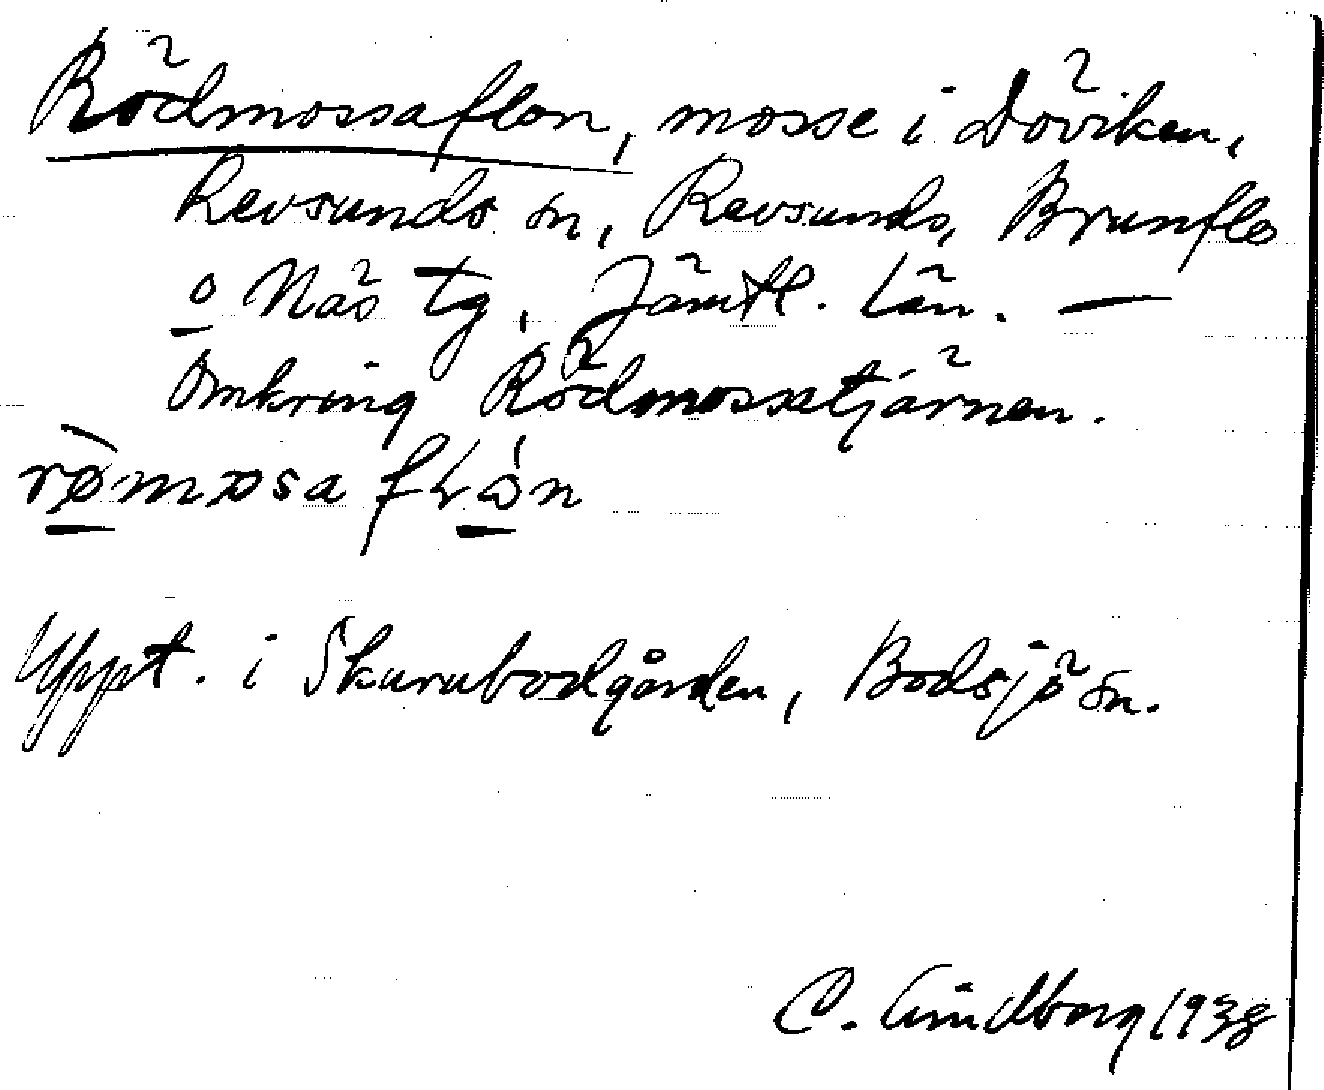 Rödmossaflon, mosse i Döviken,
Revsunds sn, Revsunds, Brunflo
o Näs tg, Jämtl. län. —
Omkring Rödmossatjärnen.
rømosa flón
Uppt. i Skurubodgården, Bodsjö sn.
C. Lindberg 1938